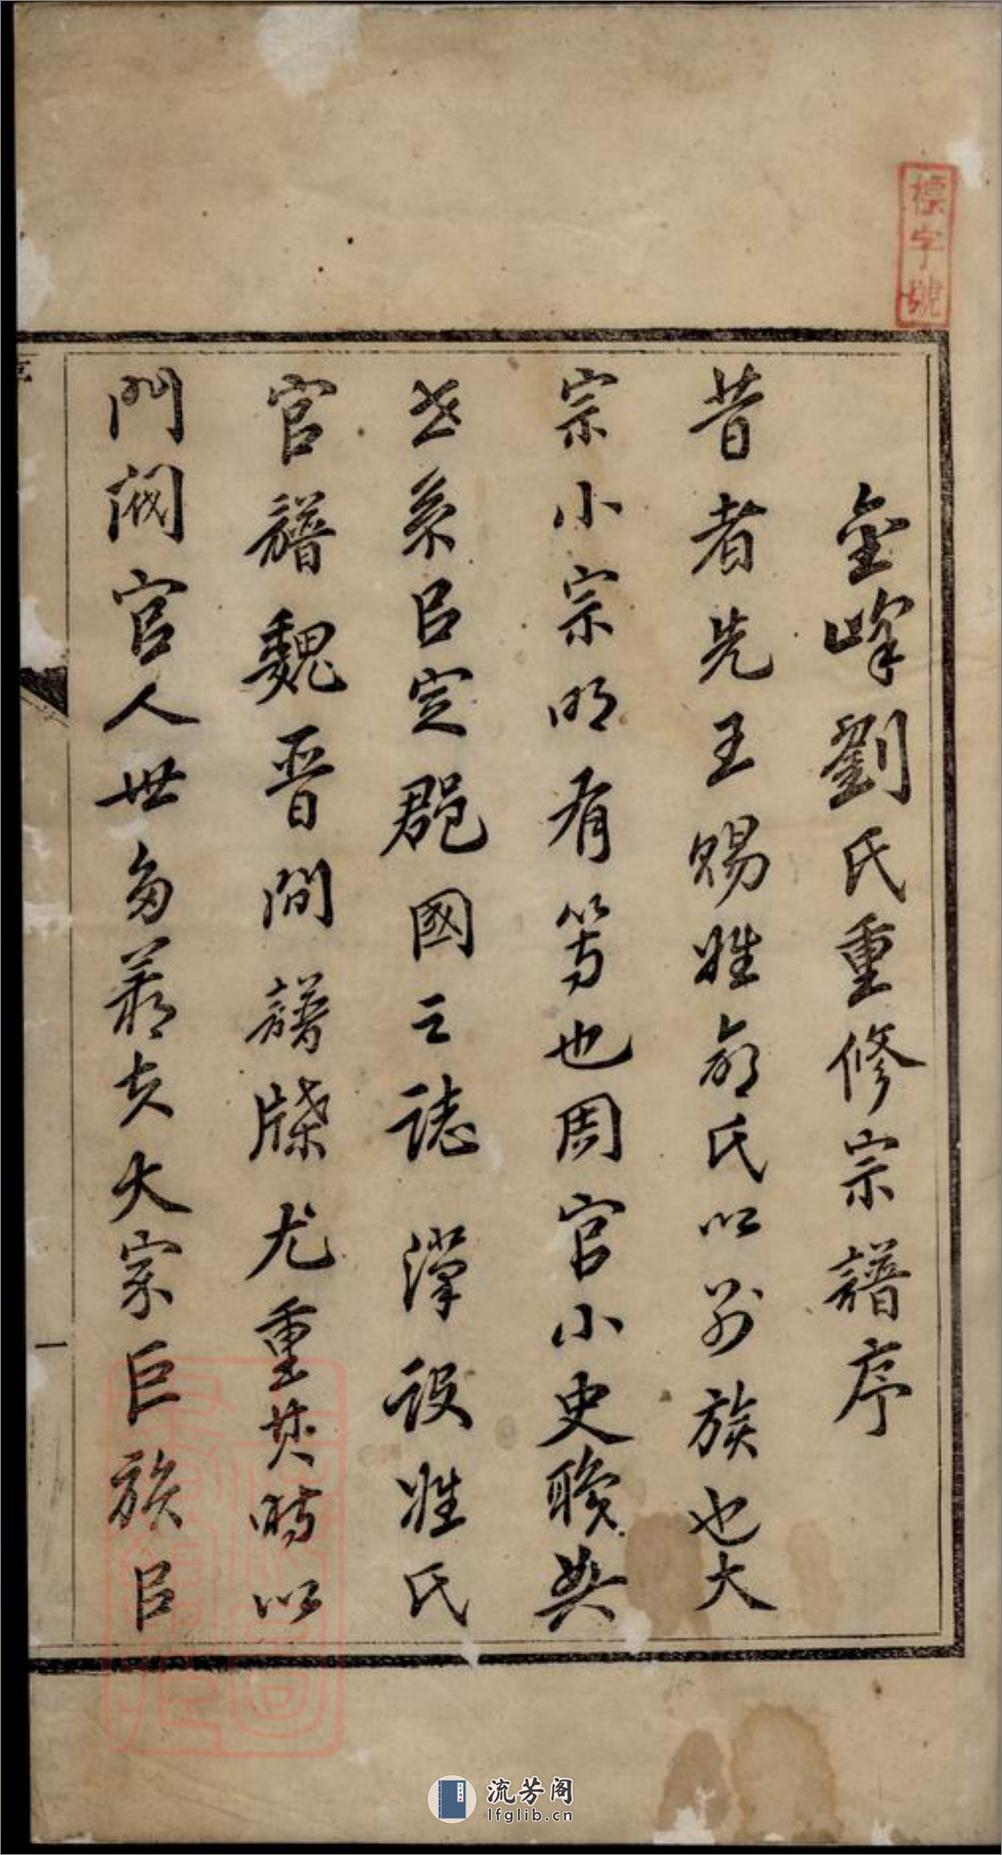 標字號
金峰劉氏重修宗譜序
昔者先王賜姓命氏以别族也大
宗小宗明有等也周官小史職奠
世系以定郡國之誌漢設姓氏
官譜魏晋間譜牒尤重其時以
門閥官人世多慕夫大家巨族以
一
流芳阁
lfglib.cn